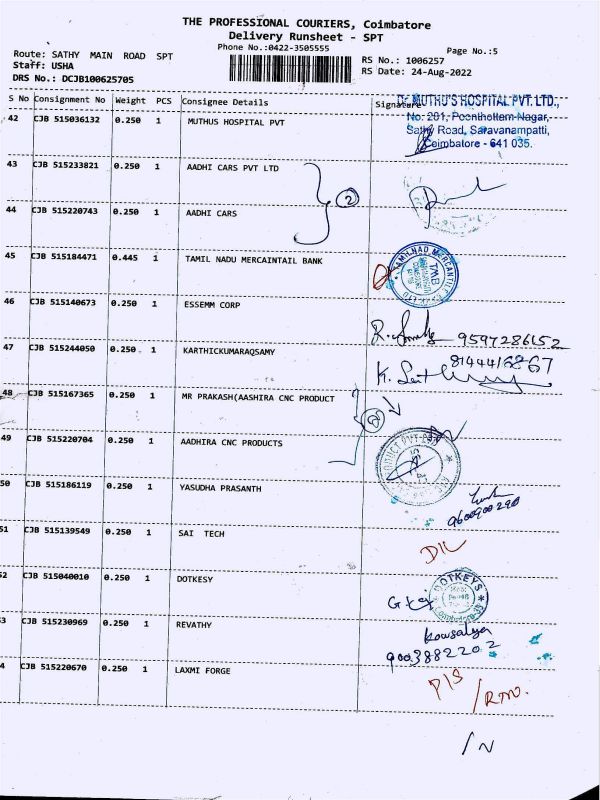 THE PROFESSIONAL COURIERS, Coimbatore
Delivery Runsheet - SPT
Phone No.:0422-3505555
Page No.:5
Route: SATHY MAIN ROAD SPT
Staff: USHA
DRS No.: DCJB100625705
RS No.: 1006257
RS Date: 24-Aug-2022
S No Consignment No Weight PCS Consignee Details Signature
Dr. MUTHU'S HOSPITAL PVT. LTD.,
No. 201, Poonthottam Nagar,
Sathy Road, Saravanampatti,
Coimbatore - 641 035.
42 CJB 515036132 0.250 1 MUTHUS HOSPITAL PVT
43 CJB 515233821 0.250 1 AADHI CARS PVT LTD
2
44 CJB 515220743 0.250 1 AADHI CARS
45 CJB 515184471 0.445 1 TAMIL NADU MERCAINTAIL BANK
TAMILNAD MERCANTILE
TMB
46 CJB 515140673 0.250 1 ESSEMM CORP
9597286152
47 CJB 515244050 0.250 1 KARTHICKUMARAQSAMY
8144416867
48 CJB 515167365 0.250 1 MR PRAKASH(AASHIRA CNC PRODUCT
2
49 CJB 515220704 0.250 1 AADHIRA CNC PRODUCTS
50 CJB 515186119 0.250 1 YASUDHA PRASANTH
9600900290
51 CJB 515139549 0.250 1 SAI TECH
D/L
52 CJB 515040010 0.250 1 DOTKESY
DOTKEYS
3 CJB 515230969 0.250 1 REVATHY
Kowsalya
9003882202
4 CJB 515220670 0.250 1 LAXMI FORGE
P/S
/RTO.
/N